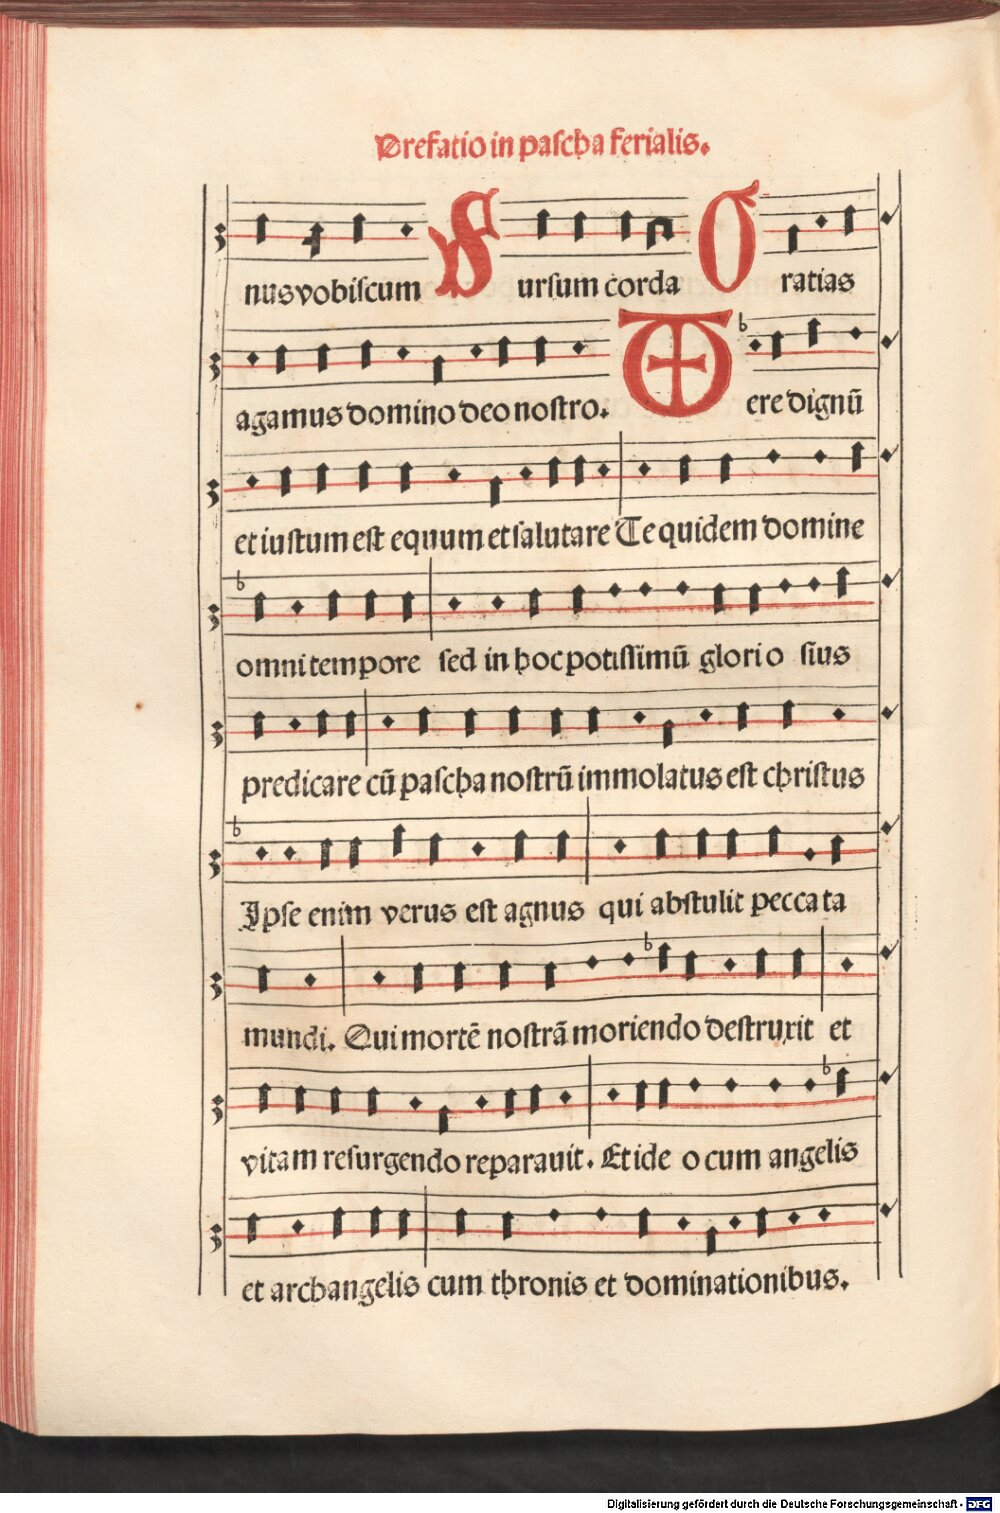 Prefatio in paſcha ferialis.
nus vobiſcum S urſum corda G ratias
agamus domino deo noſtro. V ere dignū
et iuſtum eſt equum et ſalutare Te quidem domine
omni tempore ſed in hoc potiſſimū glorio ſius
predicare cū paſcha noſtrū immolatus eſt chriſtus
Ipſe enim verus eſt agnus qui abſtulit peccata
mundi. Qui mortē noſtrā moriendo deſtruxit et
vitam reſurgendo reparauit. Et ide o cum angelis
et archangelis cum thronis et dominationibus.
Digitalisierung gefördert durch die Deutsche Forschungsgemeinschaft - DFG